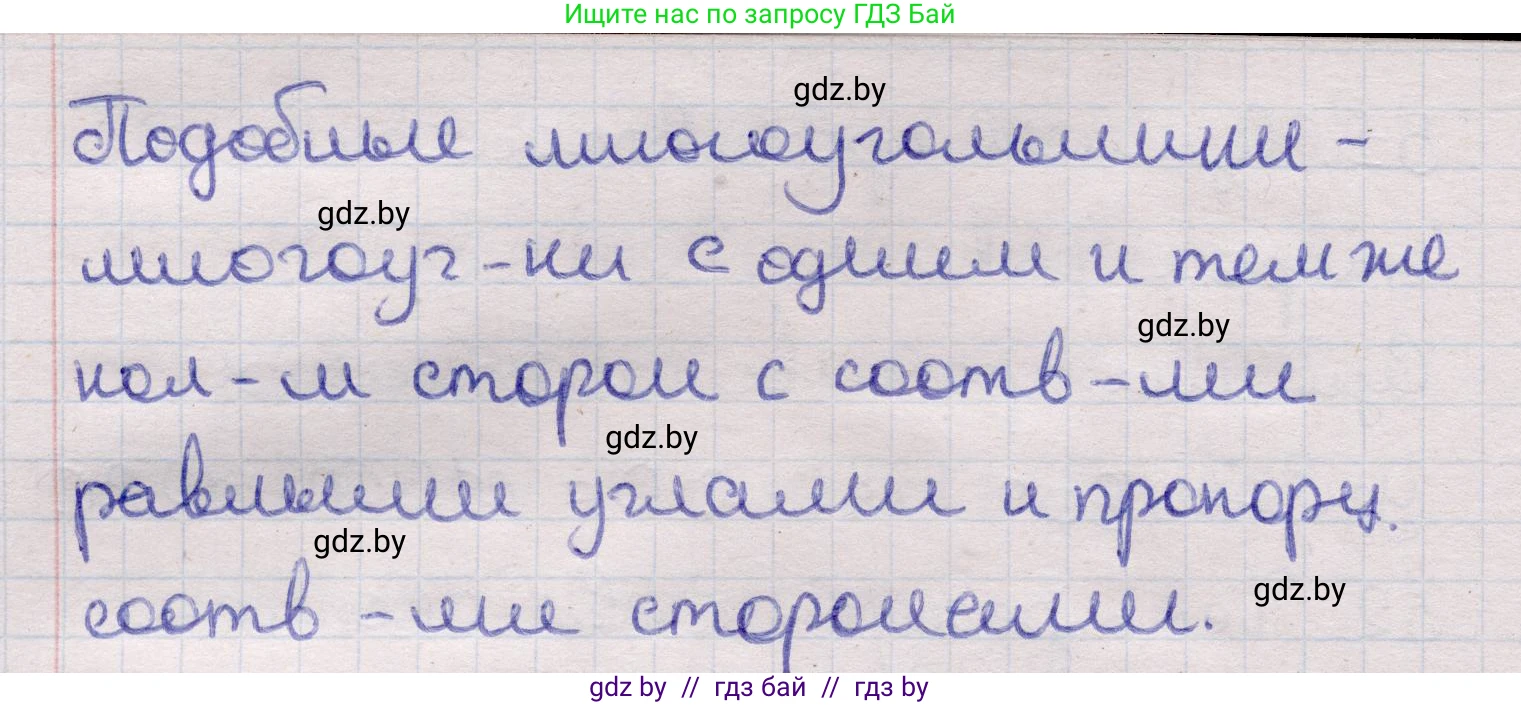 Ищите нас по запросу ГДЗ Бай
gdz.by
Подобные многоугольники -
gdz.by
многоуг-ки с одним и тем же
gdz.by
кол-м сторон с соотв-ми
gdz.by
равными углами и пропорц.
gdz.by
gdz.by
соотв-ми сторонами.
gdz by // гдз бай // гдз by